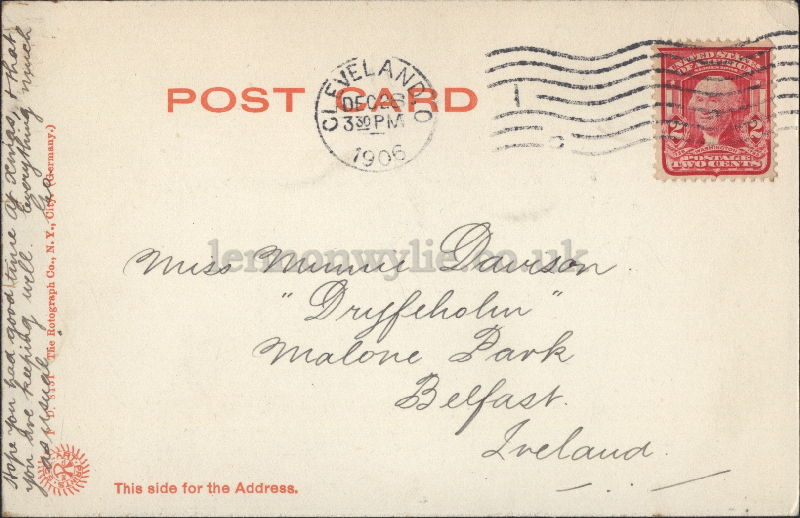 POST CARD
CLEVELAND, O
DEC 26
3 30 PM
1906
UNITED STATES
OF AMERICA
2 2
WASHINGTON
POSTAGE
TWO CENTS
lennonwylie.co.uk
Miss Minnie Davison
"Dryfeholm"
Malone Park
Belfast.
Ireland.
This side for the Address.
The Rotograph Co., N. Y., City. (Germany.)
Hope you had good time at Xmas, & that
you are keeping well. Everything much
as usual